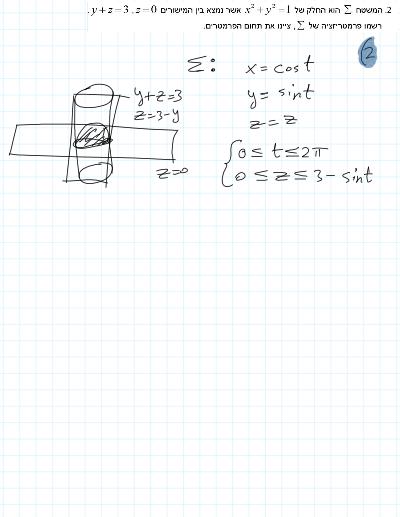 2. המשטח Σ הוא החלק של x² + y² = 1 אשר נמצא בין המישורים y + z = 3 , z = 0 .
רשמו פרמטריזציה של Σ, ציינו את תחום הפרמטרים.
2
Σ: x = cos t
y = sin t
z = z
0 ≤ t ≤ 2π
0 ≤ z ≤ 3 - sin t
y+z=3
z=3-y
z=0